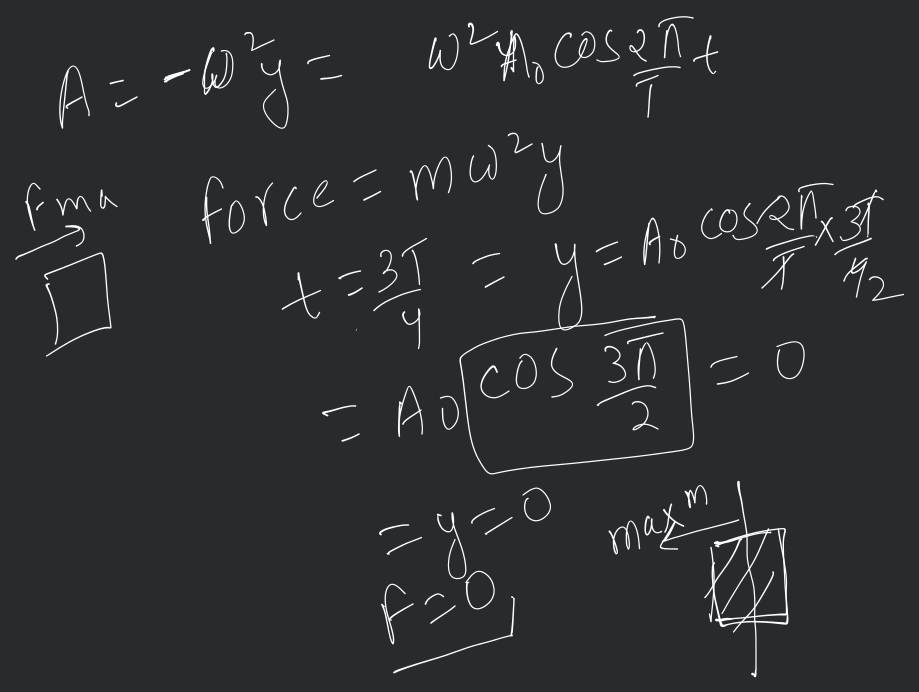 A = -ω²y = ω²A₀ cos 2π/T t
F ma
force = mω²y
t = 3T/4 = y = A₀ cos 2π/T × 3T/4 2
= A₀ cos 3π/2 = 0
= y = 0
maxᵐ
F = 0